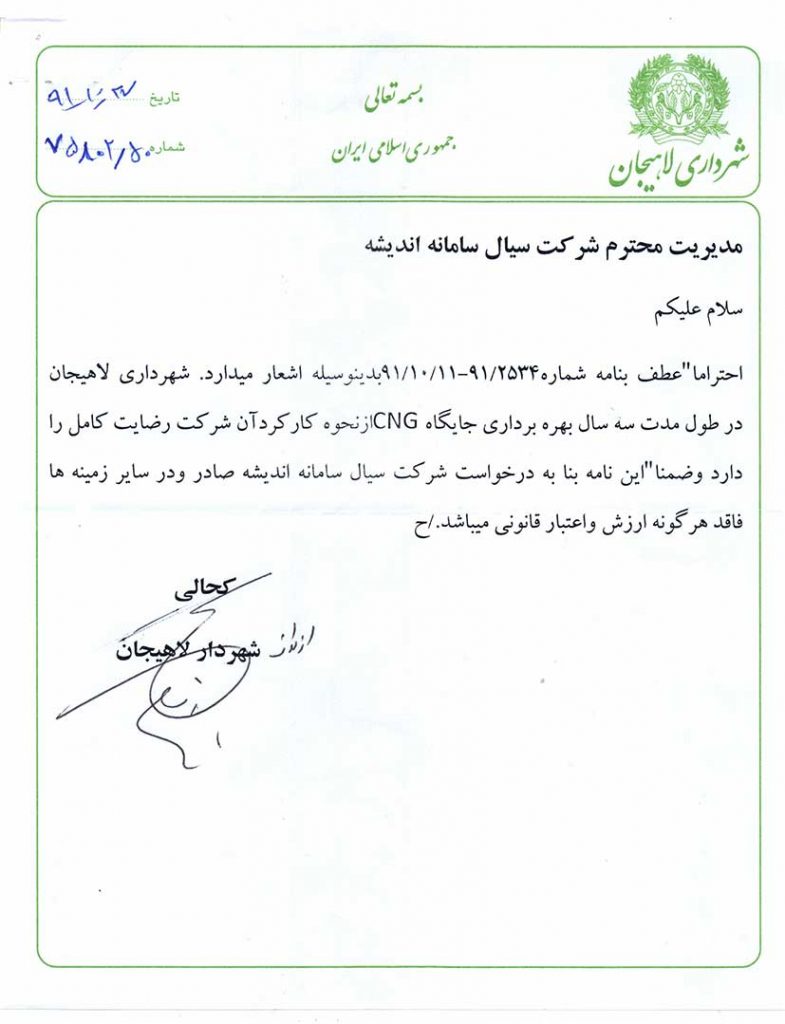 بسمه تعالی
جمهوری اسلامی ایران
شهرداری لاهیجان
تاریخ
شماره
مدیریت محترم شرکت سیال سامانه اندیشه
سلام علیکم
احتراما"عطف بنامه شماره۹۱/۲۵۳۴-۹۱/۱۰/۱۱بدینوسیله اشعار میدارد. شهرداری لاهیجان
در طول مدت سه سال بهره برداری جایگاه CNGازنحوه کارکردآن شرکت رضایت کامل را
دارد وضمنا"این نامه بنا به درخواست شرکت سیال سامانه اندیشه صادر ودر سایر زمینه ها
فاقد هرگونه ارزش واعتبار قانونی میباشد./ح
کحالی
شهردار لاهیجان